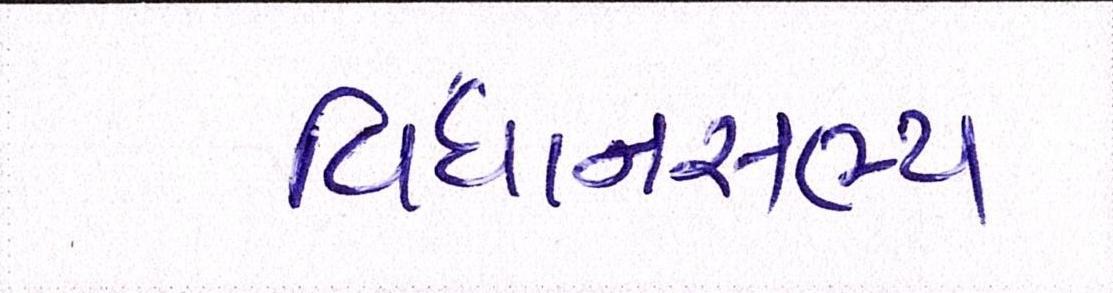 વિધાનસભ્ય